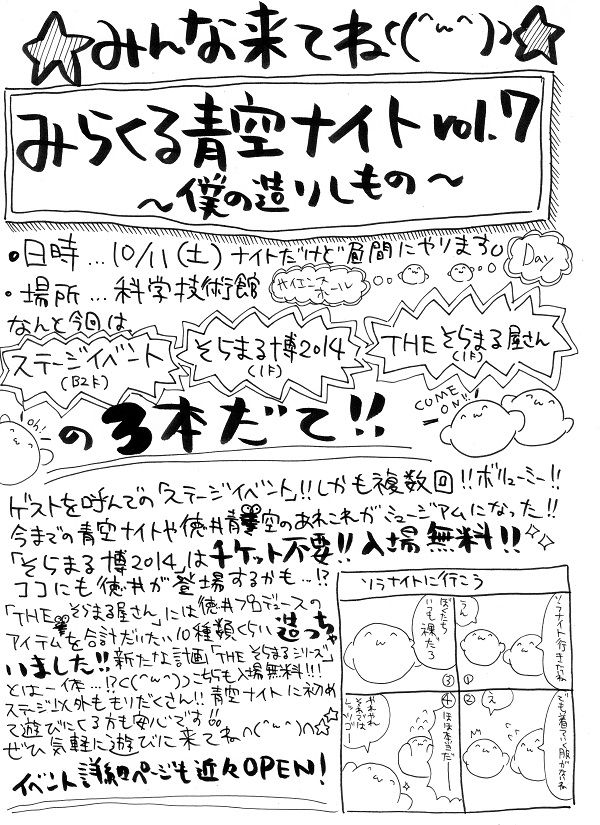 みんな来てね((^ω^))
みらくる青空ナイトvol.7
～僕の造りしもの～
・日時…10/11(土)ナイトだけど昼間にやります。
Day
・場所…科学技術館
サイエンスホール
なんと今回は、
ステージイベント
(B2F)
そらまる博2014
(1F)
THEそらまる屋さん
(1F)
Oh!
の3本だて!!
COME ON!!
ゲストを呼んでの「ステージイベント」!!しかも複数回!!ボリューミー!!
今までの青空ナイトや徳井青空のあれこれがミュージアムになった!!
「そらまる博2014」はチケット不要!!入場無料!!
ココにも徳井が登場するかも…!?
「THEそらまる屋さん」には徳井プロデュースの
アイテムを合計だいたい10種類くらい造っちゃ
いました!!新たな計画「THEそらまるシリーズ」
とは一体…!?((^ω^))こちらも入場無料!!!
ステージ以外ももりだくさん!!青空ナイトに初め
て遊びにくる方も安心です!!
ぜひ気軽に遊びに来てね∩(^ω^)∩
イベント詳細ページも近々OPEN!
ソラナイトに行こう
ソラナイト行きたいね
うん
①
でも着ていく服がないね
え
②
ぼくたちいつも裸だろ
③
④
ほほ本当だー